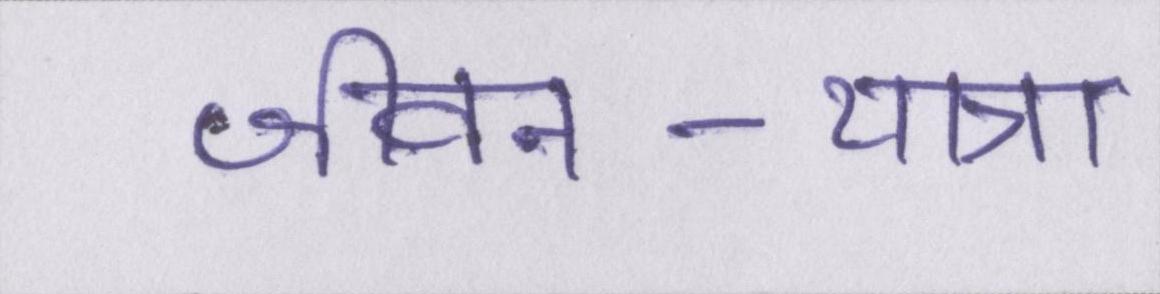 जीवन - यात्रा